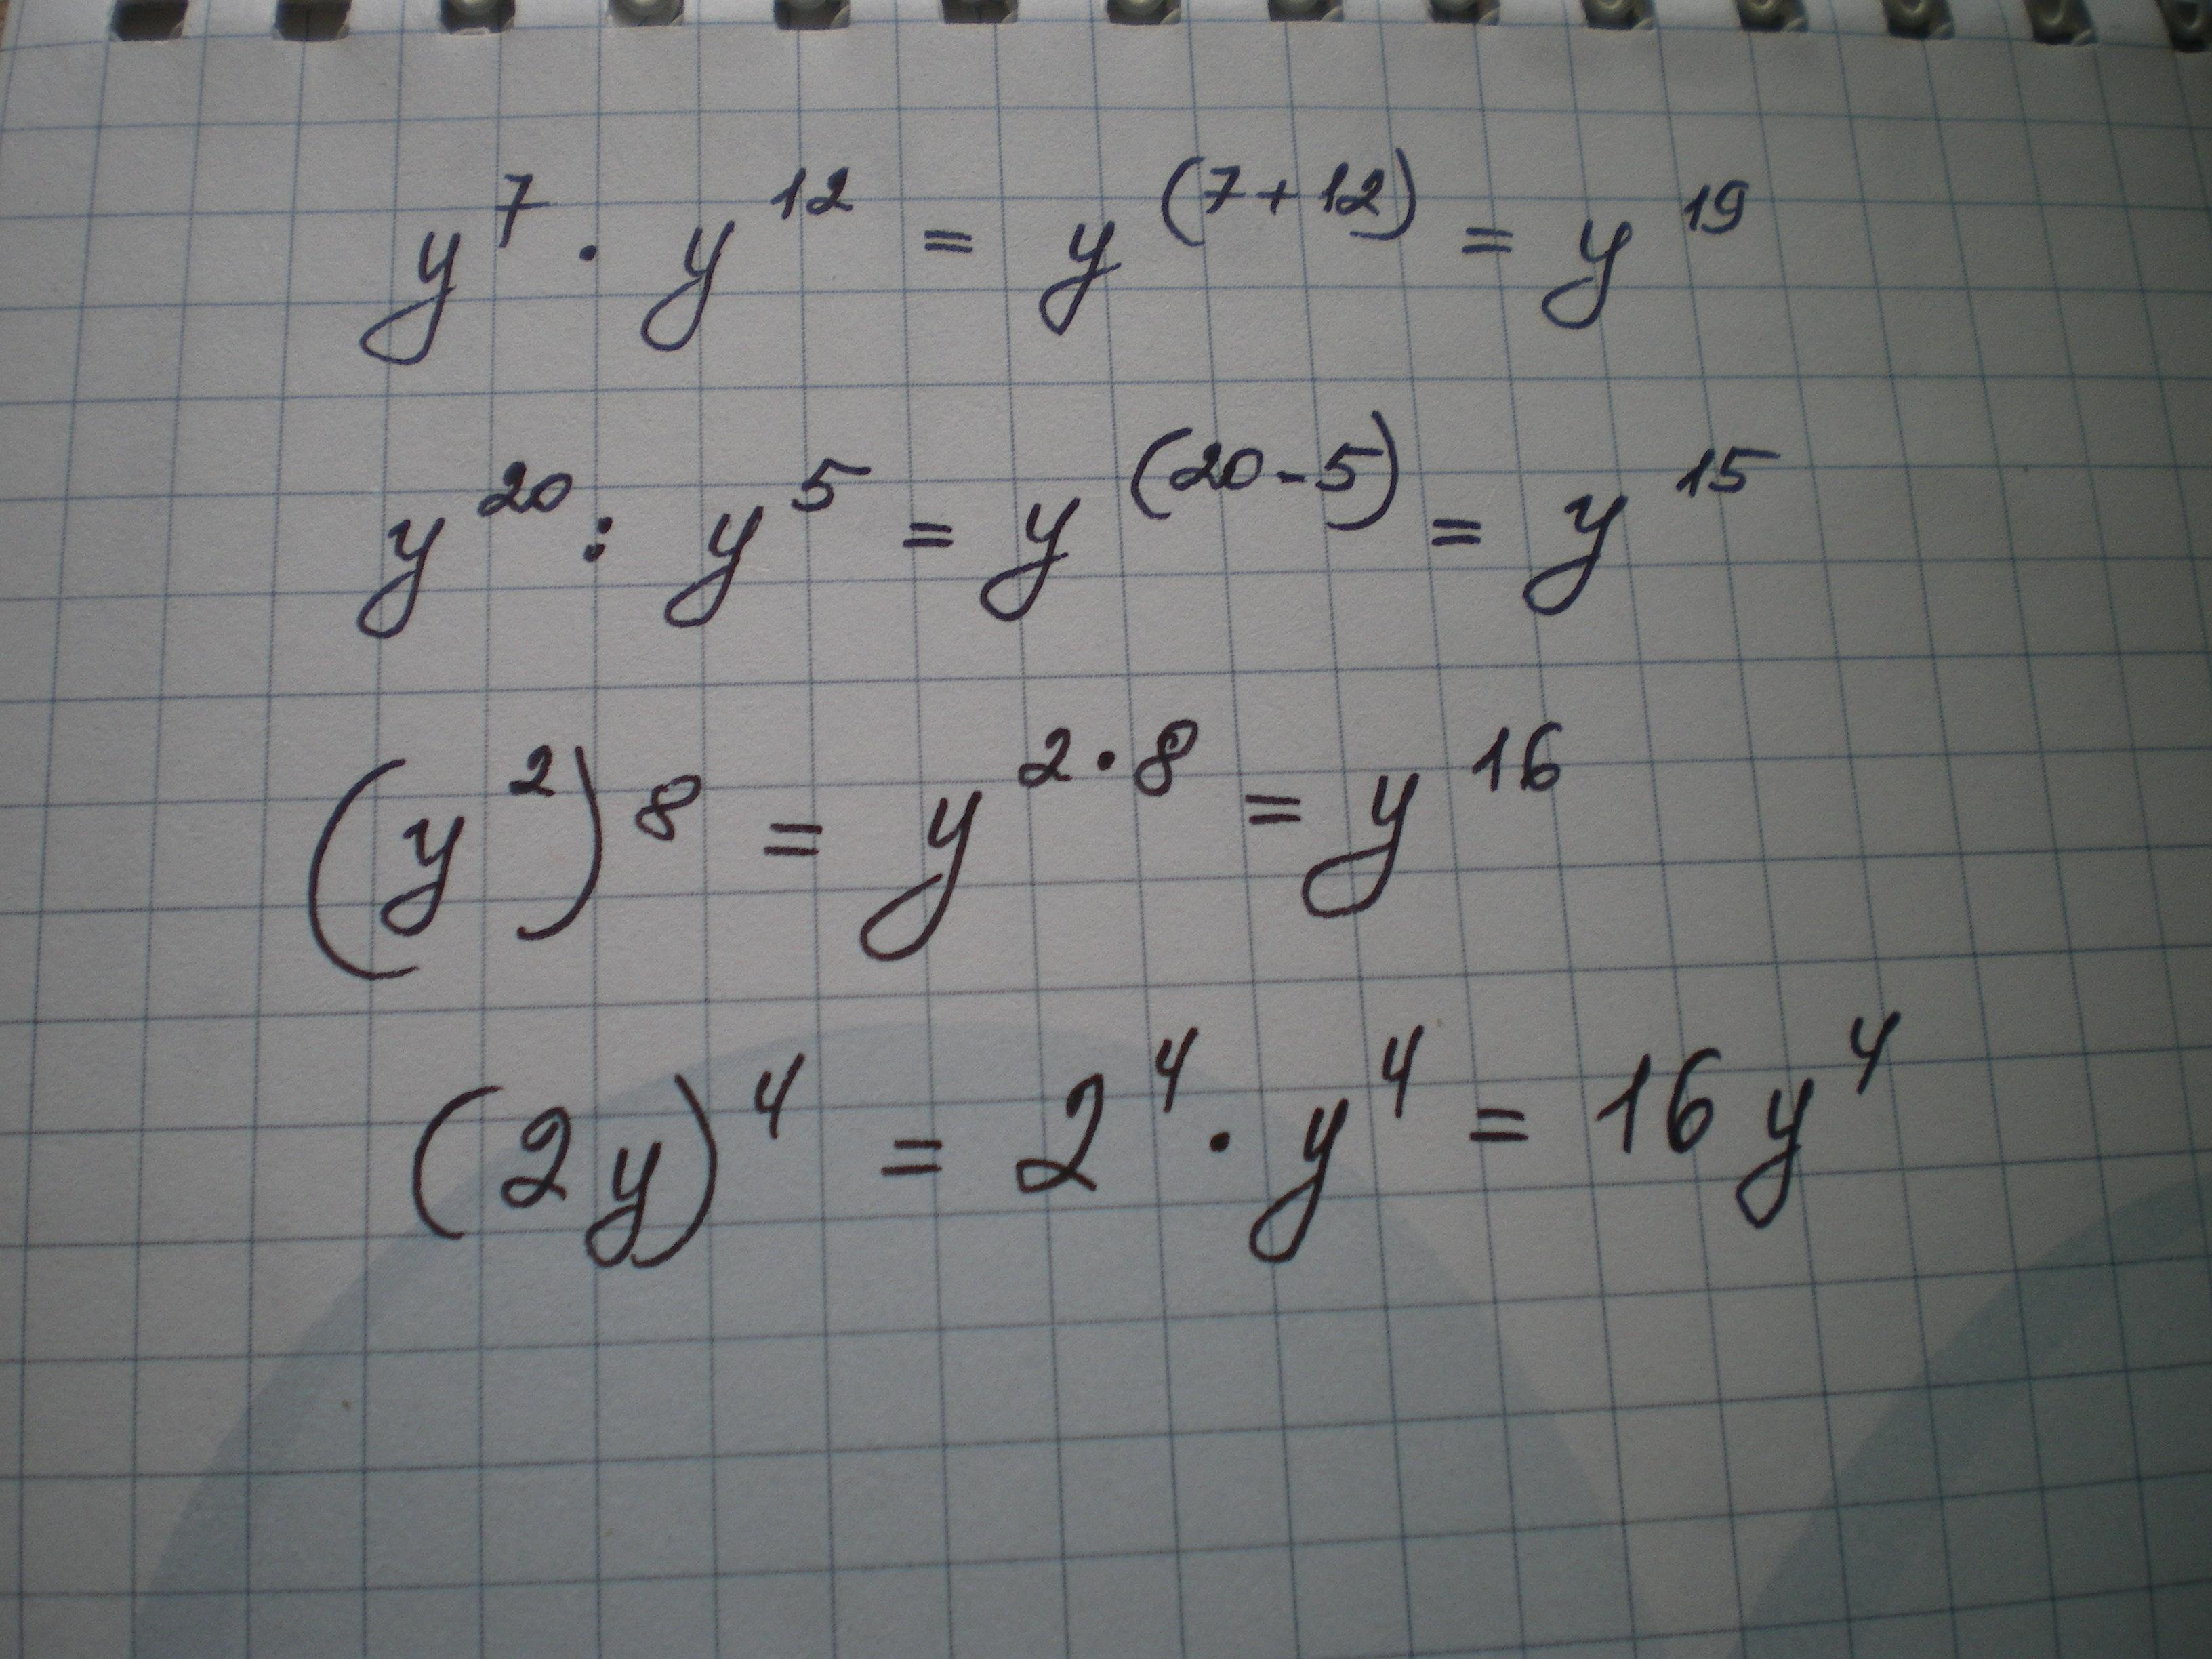 y⁷ · y¹² = y⁽⁷⁺¹²⁾ = y¹⁹
y²⁰ : y⁵ = y⁽²⁰⁻⁵⁾ = y¹⁵
(y²)⁸ = y²·⁸ = y¹⁶
(2y)⁴ = 2⁴ · y⁴ = 16y⁴